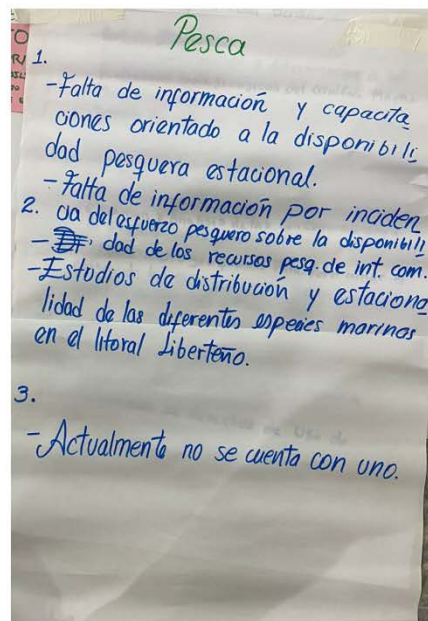 Pesca
1.
-Falta de información y capacita
ciones orientado a la disponibili
dad pesquera estacional.
-Falta de información por inciden
2. cia del esfuerzo pesquero sobre la disponibili
- dad de los recursos pesq. de int. com.
-Estudios de distribución y estaciona
lidad de las diferentes especies marinas
en el litoral Liberteño.
3.
-Actualmente no se cuenta con uno.